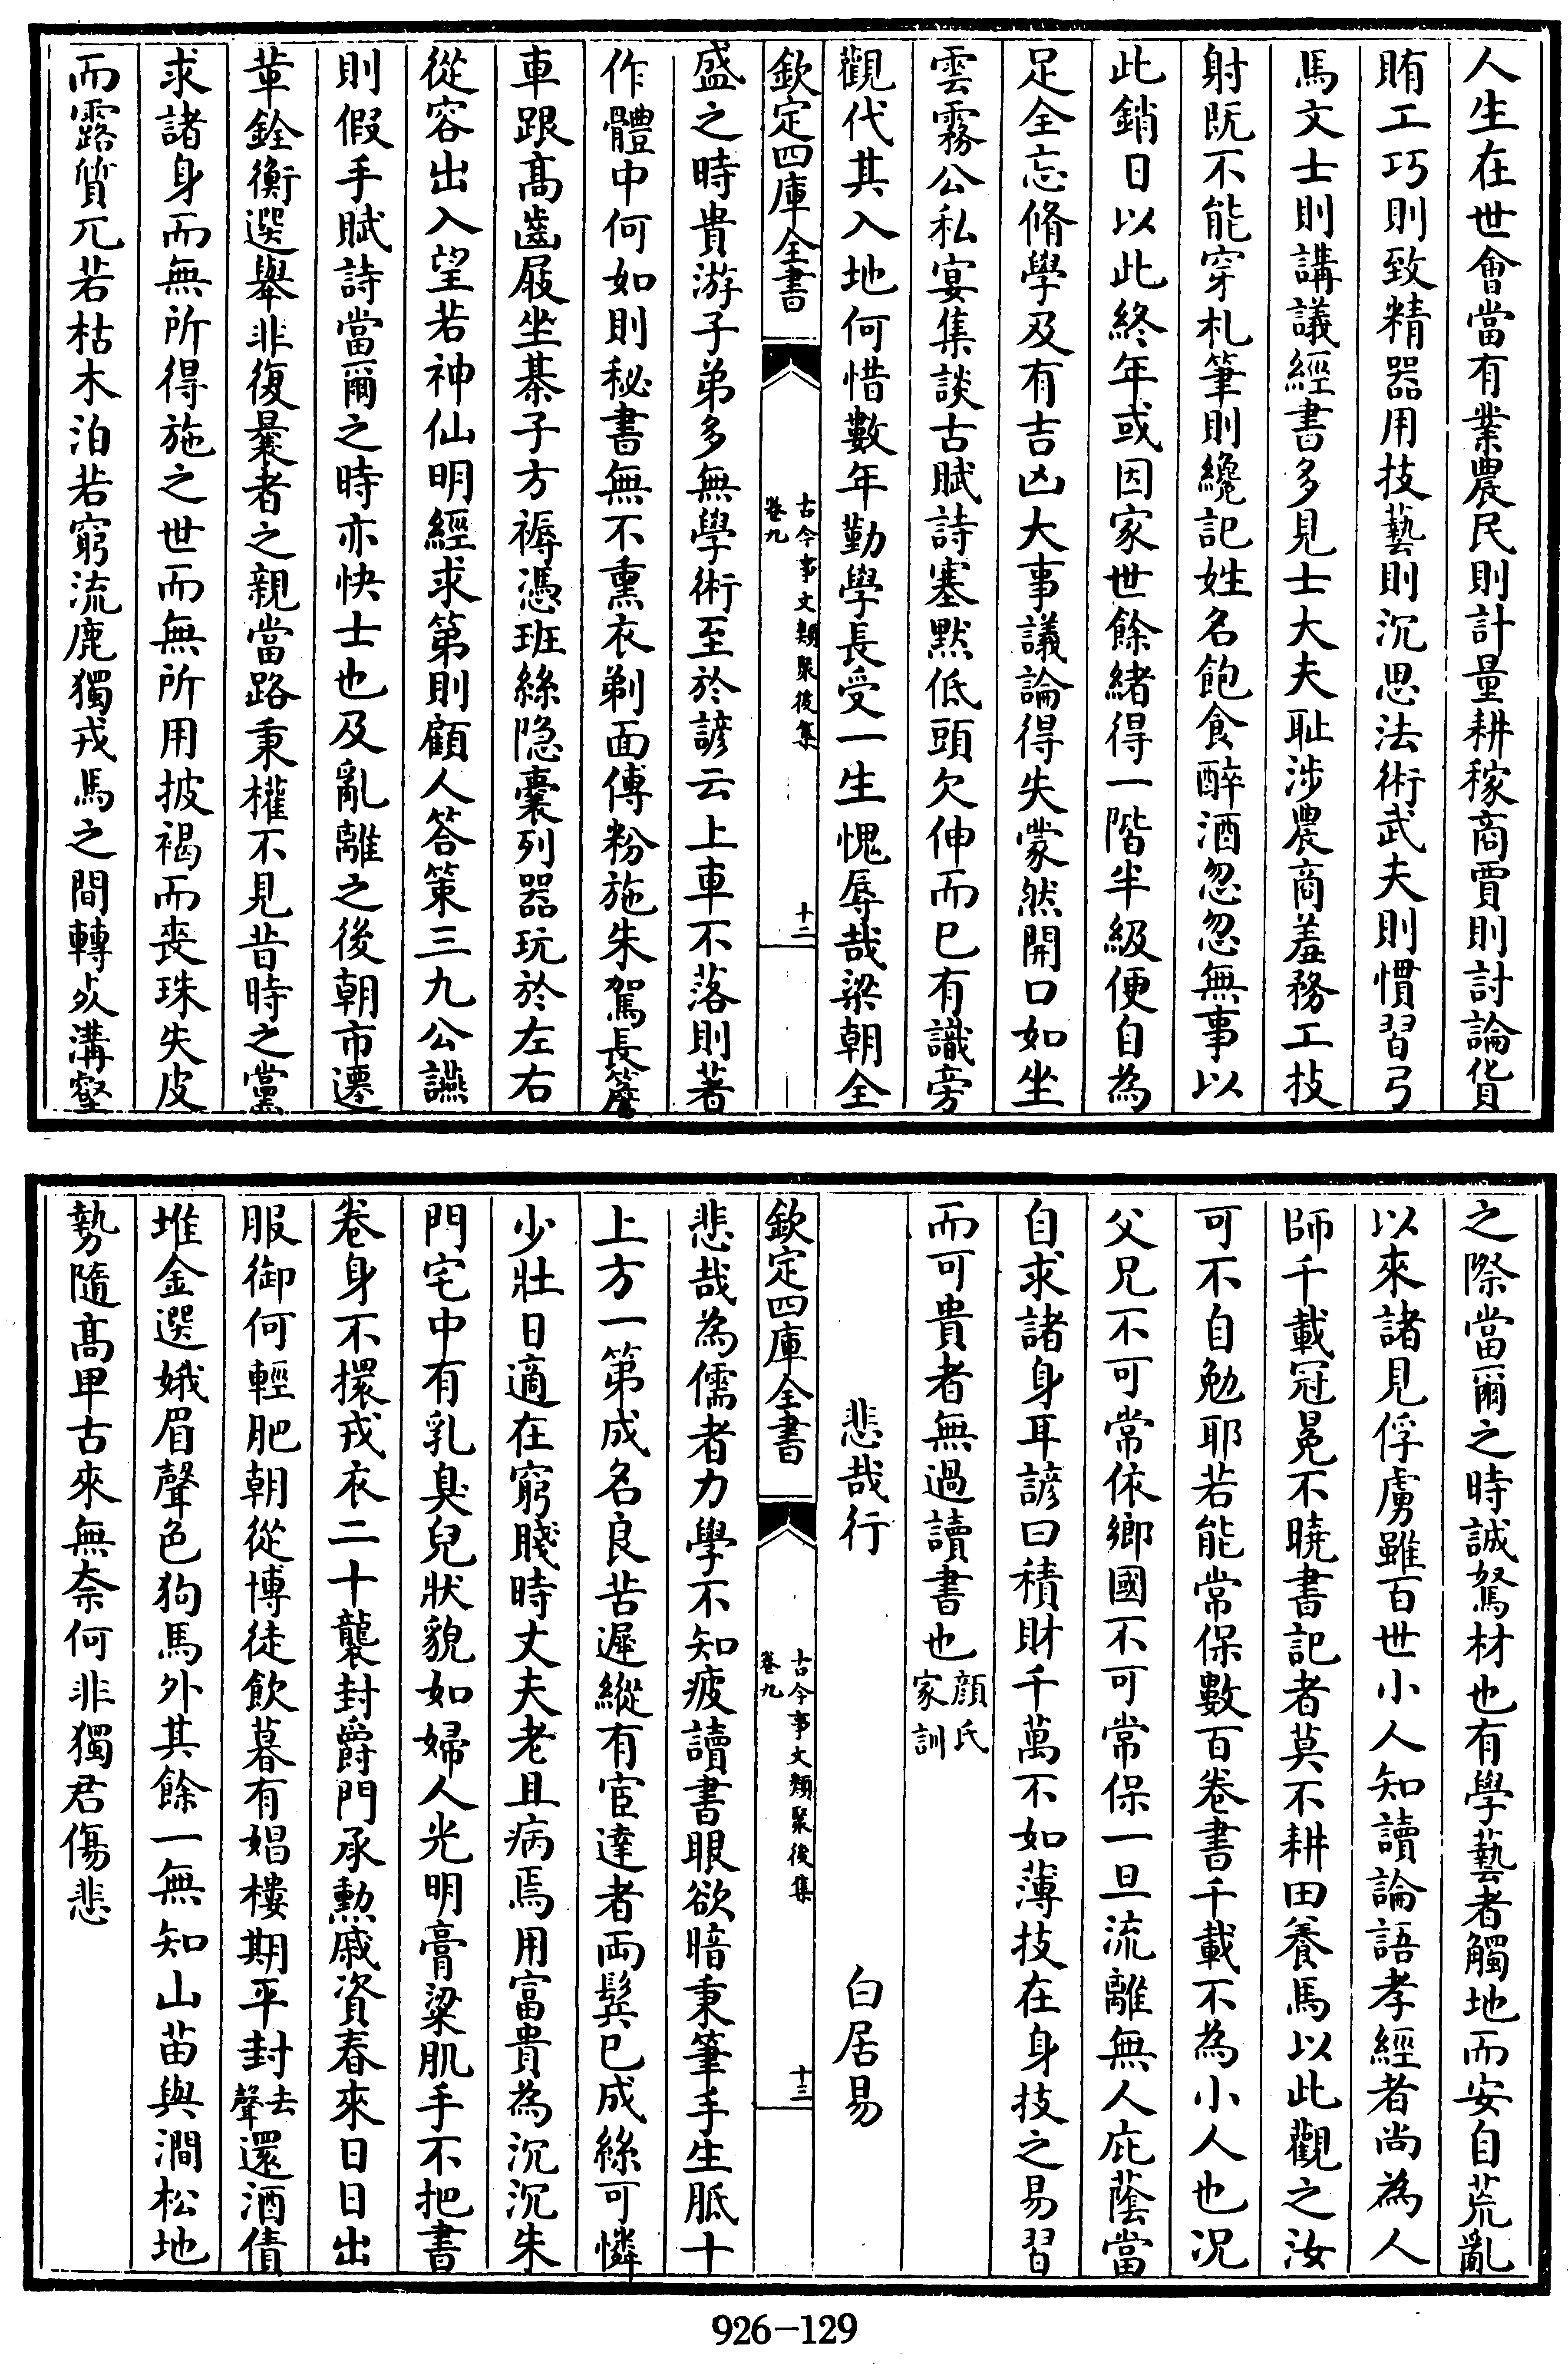 人生在世會當有業農民則計量耕稼商賈則討論貨
賄工巧則致精器用技藝則沉思法術武夫則慣習弓
馬文士則講議經書多見士大夫耻涉農商羞務工技
射既不能穿札筆則纔記姓名飽食醉酒忽忽無事以
此銷日以此終年或因家世餘緒得一階半級便自為
足全忘脩學及有吉凶大事議論得失蒙然開口如坐
雲霧公私宴集談古賦詩塞默低頭欠伸而已有識旁
觀代其入地何惜數年勤學長受一生愧辱哉梁朝全
欽定四庫全書
古今事文類聚後集
卷九
十二
盛之時貴游子弟多無學術至於諺云上車不落則著
作體中何如則秘書無不熏衣剃面傅粉施朱駕長簷
車跟高齒屐坐棊子方褥憑班絲隐囊列器玩於左右
從容出入望若神仙明經求第則顧人答策三九公讌
則假手賦詩當爾之時亦快士也及亂離之後朝市遷
革銓衡選舉非復曩者之親當路秉權不見昔時之黨
求諸身而無所得施之世而無所用披褐而喪珠失皮
而露質兀若枯木泊若窮流鹿獨戎馬之間轉死溝壑
之際當爾之時誠駑材也有學藝者觸地而安自荒亂
以來諸見俘虜雖百世小人知讀論語孝經者尚為人
師千載冠冕不曉書記者莫不耕田養馬以此觀之汝
可不自勉耶若能常保數百卷書千載不為小人也况
父兄不可常依鄉國不可常保一旦流離無人庇蔭當
自求諸身耳諺曰積財千萬不如薄技在身技之易習
而可貴者無過讀書也顔氏家訓
悲哉行 白居易
欽定四庫全書
古今事文類聚後集
卷九
十三
悲哉為儒者力學不知疲讀書眼欲暗秉筆手生胝十
上方一第成名良苦遲縱有宦達者兩鬂已成絲可憐
少壯日適在窮賤時丈夫老且病焉用富貴為沉沉朱
門宅中有乳臭兒狀貌如婦人光明膏粱肌手不把書
卷身不擐戎衣二十襲封爵門承勲戚資春來日日出
服御何輕肥朝從博徒飲暮有娼樓期平封去聲還酒債
堆金選娥眉聲色狗馬外其餘一無知山苗與澗松地
勢隨高甲古來無奈何非獨君傷悲
926-129